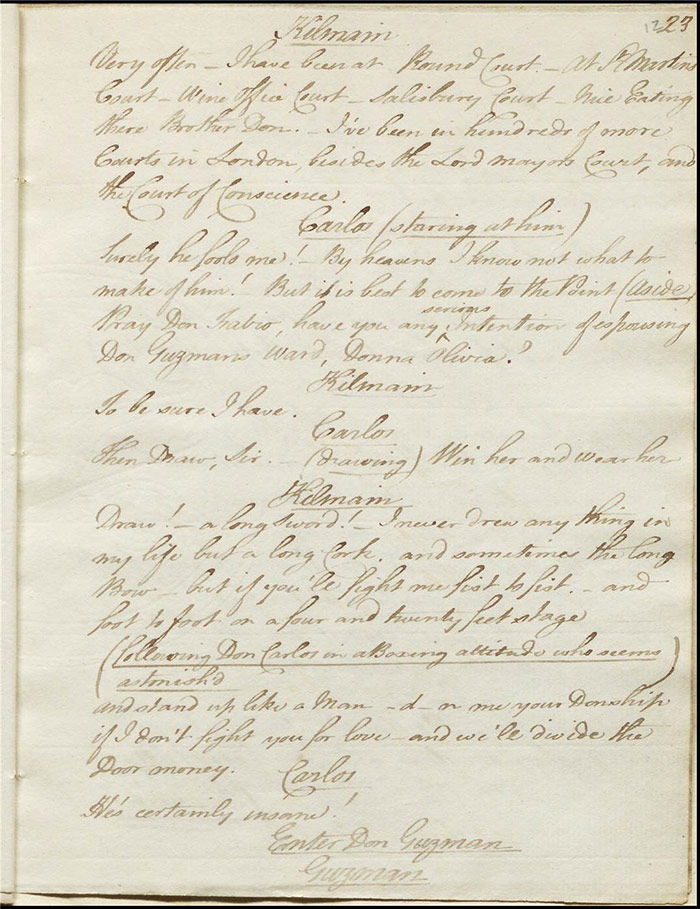 Kilmain
12 23
Very often – I have been at Round Court. – At St Martins
Court – Wine Office Court – Salisbury Court – Nice Eating
there Brother Don. – I've been in hundreds of more
Courts in London, besides the Lord mayors Court, and
the Court of Conscience.
Carlos (staring at him)
Surely he fools me! – By heavens I know not what to
make of him! But it is best to come to the Point (Aside
serious
Pray Don Fabio, have you any ^ Intention of espousing
Don Guzmans Ward, Donna Olivia?
Kilmain
To be sure I have.
Carlos
Then Draw, Sir. – (drawing) Win her and wear her
Kilmain
Draw! – a long Sword! – I never drew any thing in
my life but a long Cork. and sometimes the long
Bow – but if you'll fight me fist to fist. – and
foot to foot on a four and twenty feet stage
(following Don Carlos in a Boxing attitude who seems)
astonish'd
and stand up like a Man – d–n me your Donship
if I don't fight you for love – and we'll divide the
Door money.
Carlos
He's certainly insane!
Enter Don Guzman
Guzman